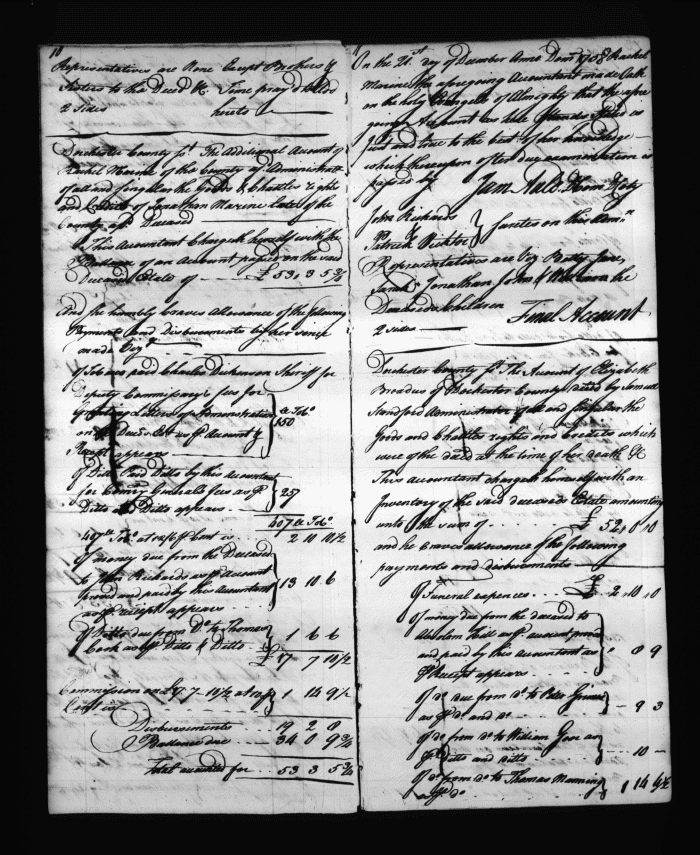 10
Representatives are None Except Brothers &
Sisters to the Deced &c Time pray'd to Add
2 Sides hereto
Dorchester County Ss. The Additional Account of
Rachel Marine of the County aff Administratrix
of all and singular the Goods & Chattles rights
and Credits of Jonathan Marine late of the
County aff Deceased
This Accountant Chargeth herself with the
Ballance of an Account passed on the said
Deceaseds Estate of £ 53 . 3 5 ¾
And she humbly Craves Allowance of the following
Payments and disbursements by her since
made Vizt
Of Tobacco paid Charles Dickinson Sheriff for
Deputy Commissarys fees for
Letters of Administration
on the Deceds Est as pr Account &
Receipt appears
lb Tobo
150
Of Ditto Paid Ditto by this Accountant
for Comry Generals fees as pr
Ditto & Ditto appears 257
407 lb Tobo
407 lb Tobo at is 2 10 10½
Of money due from the Deceased
to John Richards as pr Account
proved and paid by this Accountant
as pr receipt appears 13 10 6
Of Ditto due from Do to Thomas
Cook as pr Ditto & Ditto 1 6 6
£ 17 7 10½
Commission on £17 . 7 . 10½ at 10 p
Cent is 1 14 9½
Disbursements 19 2 8
Ballance due 34 0 9¾
Total accounted for 53 3 5¾
11
On the 21st day of December Anno Dom 1768 Rachel
Marine the aforegoing Accountant made Oath
on the holy Evangels of Almighty God that the afore
going Account as here Stands Stated is
Just and true to the best of her knowledge
which hereupon after due examination is
passed by Jam Auld Dcom Dcoty
John Richards
Patrick Sureties on his Admn
Representatives are Viz Betty, Jane,
Sarah, Jonathan, John & the
Deceaseds Children
2 sides Final Account
Dorchester County Ss. The Account of Elizabeth
of Dorchester County deced by Samuel
Standford Administrator of all and singular the
Goods and Chattles rights and credits which
were of the deced at the time of her death &c
This accountant charges himself with an
Inventory of the said deceaseds Estate amounting
unto the sum of £ 52 . 0 . 10
and he craves allowance of the following
payments and disbursements
Of Funeral expences £ 2 . 10 . 0
Of money due from the deceased to
Absolam as pr account proved
and paid by this Accountant as
pr Receipt appears " 8 9
Of do due from do to Peter
as pr do and do 9 3
Of do from do to William as
pr Ditto and ditto 10
Of do from do to Thomas Manning
as pr do 1 14 4½